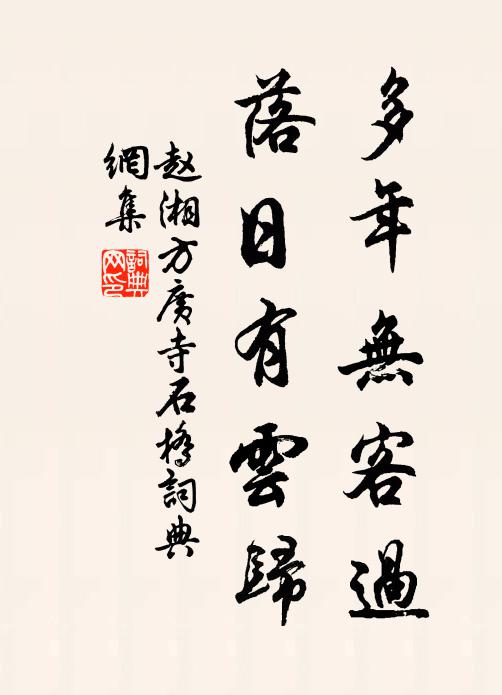 多年無客過
落日有雲歸
赵湘方廣寺石橋詞典
網集
詞典
网印